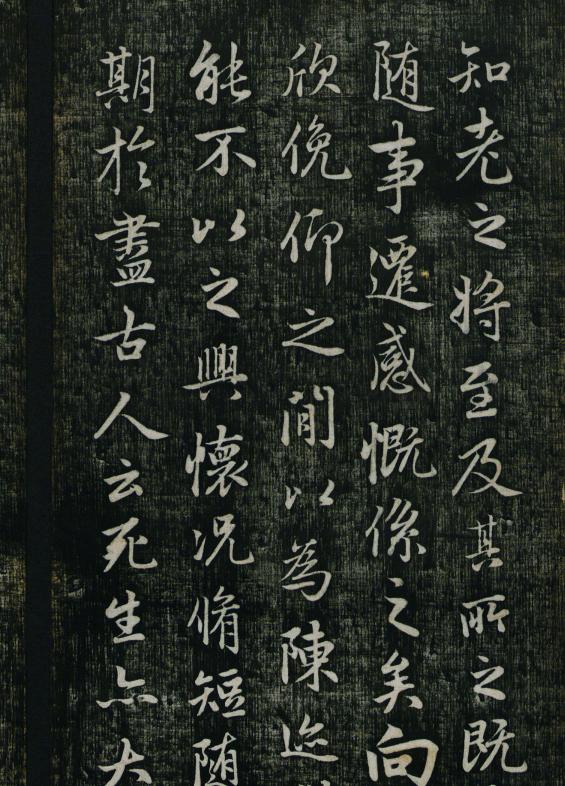 知老之將至及其所之既
随事遷感慨係之矣向
欣俛仰之間以為陳迹
能不以之興懷況脩短随
期於盡古人云死生亦大